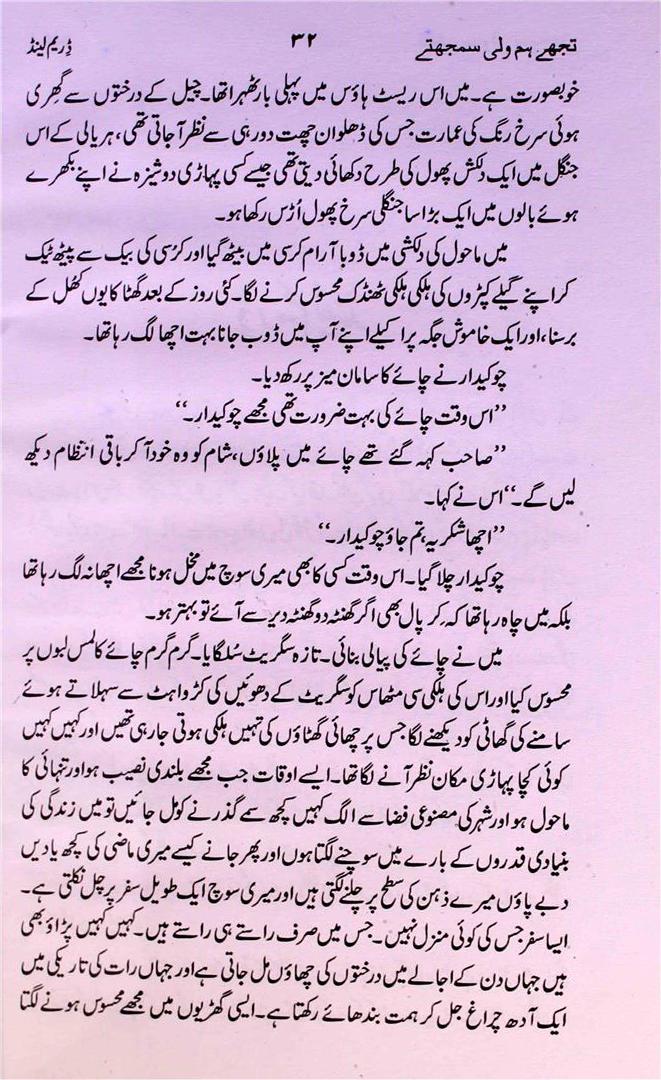 تجھے ہم ولی سمجھتے ۳۲ ڈریم لینڈ
خوبصورت ہے۔ میں اس ریسٹ ہاؤس میں پہلی بار ٹھہرا تھا۔ چیل کے درختوں سے گھِری
ہوئی سرخ رنگ کی عمارت جس کی ڈھلوان چھت دور ہی سے نظر آ جاتی تھی، ہریالی کے اس
جنگل میں ایک دلکش پھول کی طرح دکھائی دیتی تھی جیسے کسی پہاڑی دوشیزہ نے اپنے بکھرے
ہوئے بالوں میں ایک بڑا سا جنگلی سرخ پھول اُڑس رکھا ہو۔
میں ماحول کی دلکشی میں ڈوبا آرام کرسی میں بیٹھ گیا اور کرُسی کی بیک سے پیٹھ ٹیک
کر اپنے گیلے کپڑوں کی ہلکی ہلکی ٹھنڈک محسوس کرنے لگا۔ کئی روز کے بعد گھٹا کا یوں کھُل کے
برسنا، اور ایک خاموش جگہ پر اکیلے اپنے آپ میں ڈوب جانا بہت اچھا لگ رہا تھا۔
چوکیدار نے چائے کا سامان میز پر رکھ دیا۔
’’اس وقت چائے کی بہت ضرورت تھی مجھے چوکیدار۔‘‘
’’صاحب کہہ گئے تھے چائے میں پلاؤں، شام کو وہ خود آ کر باقی انتظام دیکھ
لیں گے۔‘‘ اس نے کہا۔
’’اچھا شکریہ تم جاؤ چوکیدار۔‘‘
چوکیدار چلا گیا۔ اس وقت کسی کا بھی میری سوچ میں مخل ہونا مجھے اچھا نہ لگ رہا تھا
بلکہ میں چاہ رہا تھا کہ کرِپال بھی اگر گھنٹہ دو گھنٹہ دیر سے آئے تو بہتر ہو۔
میں نے چائے کی پیالی بنائی۔ تازہ سگریٹ سُلگایا۔ گرم گرم چائے کا لمس لبوں پر
محسوس کیا اور اس کی ہلکی سی مٹھاس کو سگریٹ کے دھوئیں کی کڑواہٹ سے سہلاتے ہوئے
سامنے کی گھاٹی کو دیکھنے لگا جس پر چھائی گھٹاؤں کی تہیں ہلکی ہوتی جا رہی تھیں اور کہیں کہیں
کوئی کچا پہاڑی مکان نظر آنے لگا تھا۔ ایسے اوقات جب مجھے بلندی نصیب ہو اور تنہائی کا
ماحول ہو اور شہر کی مصنوعی فضا سے الگ کہیں کچھ سمے گذرنے کو مل جائیں تو میں زندگی کی
بنیادی قدروں کے بارے میں سوچنے لگتا ہوں اور پھر جانے کیسے میری ماضی کی کچھ یادیں
دبے پاؤں میرے ذہن کی سطح پر چلنے لگتی ہیں اور میری سوچ ایک طویل سفر پر چل نکلتی ہے۔
ایسا سفر جس کی کوئی منزل نہیں۔ جس میں صرف راستے ہی راستے ہیں۔ کہیں کہیں پڑاؤ بھی
ہیں جہاں دن کے اجالے میں درختوں کی چھاؤں مل جاتی ہے اور جہاں رات کی تاریکی میں
ایک آدھ چراغ جل کر ہمت بندھائے رکھتا ہے۔ ایسی گھڑیوں میں مجھے محسوس ہونے لگتا